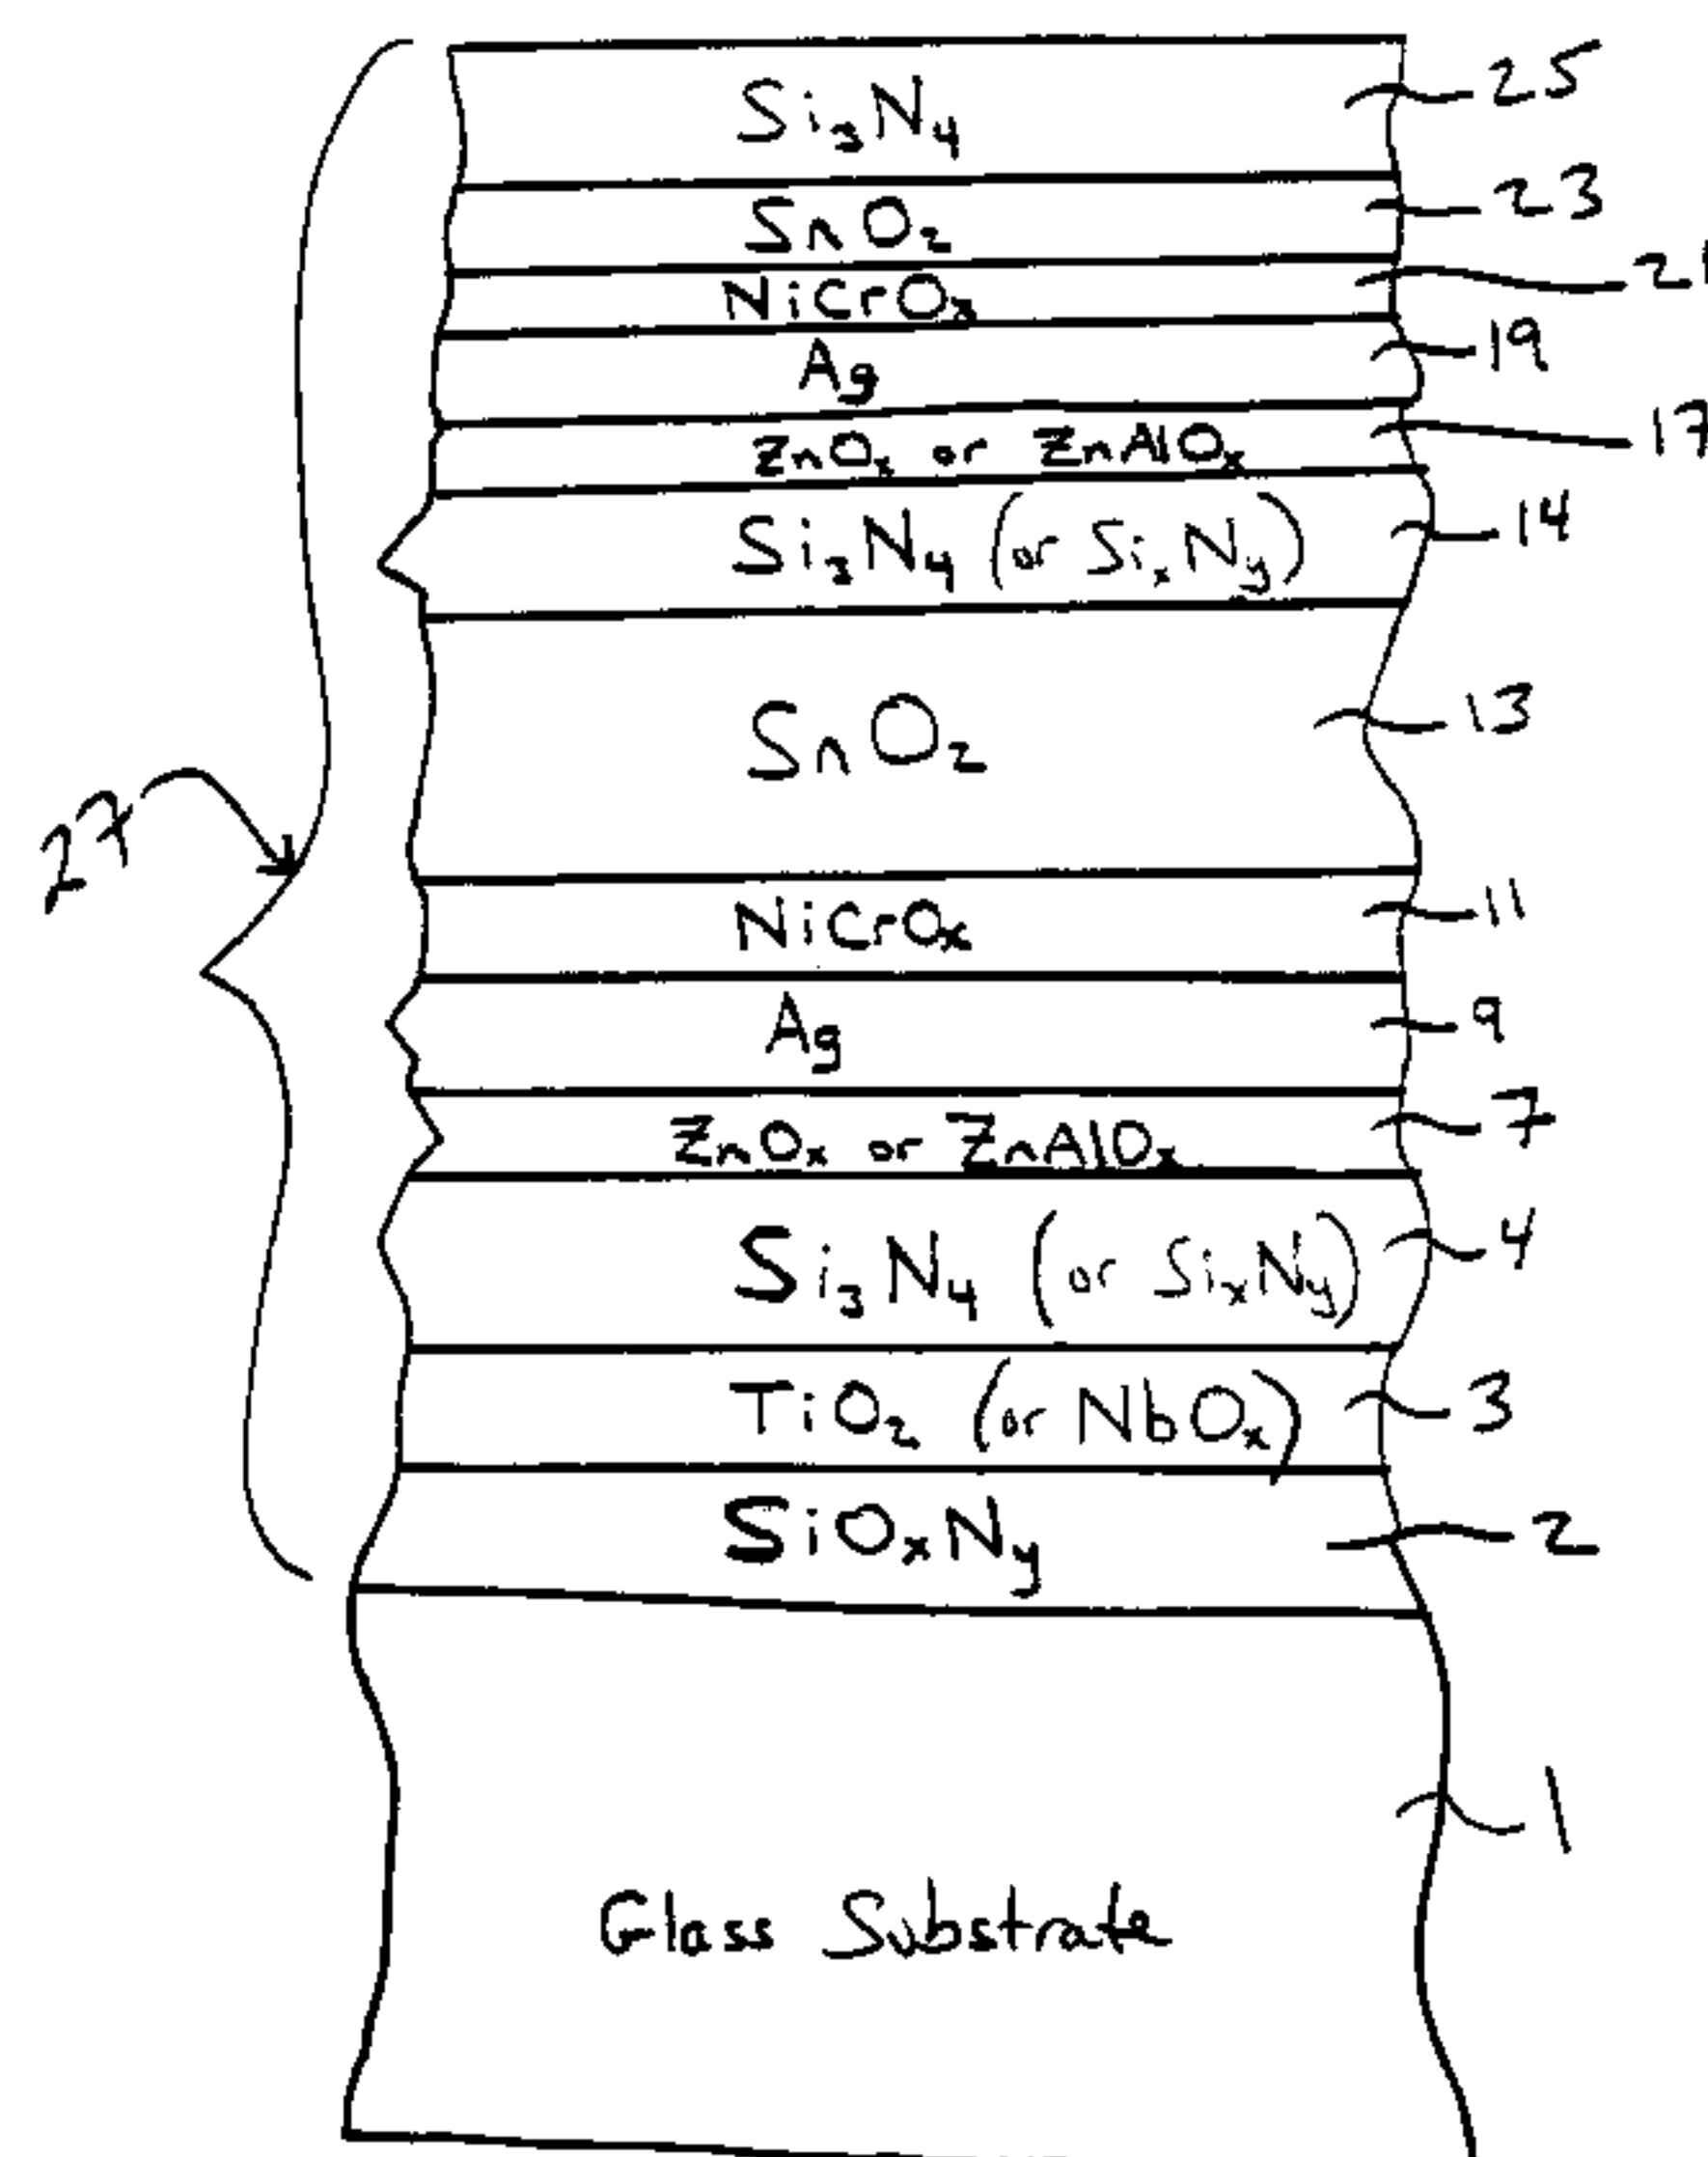 Si₃N₄ 25
SnO₂ 23
NiCrOₓ
Ag 19
ZnOₓ or ZnAlOₓ 17
Si₃N₄ (or SiₓNᵧ) 14
SnO₂ 13
27
NiCrOₓ 11
Ag 9
ZnOₓ or ZnAlOₓ 7
Si₃N₄ (or SiₓNᵧ) 4
TiO₂ (or NbOₓ) 3
SiOₓNᵧ 2
1
Glass Substrate